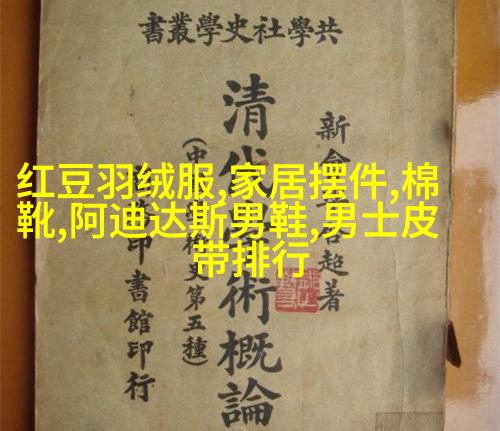 共學社史學叢書
新會
超著
清代
術概論
(中
史第五種)
印書館印行
红豆羽绒服,家居摆件,棉
靴,阿迪达斯男鞋,男士皮
带排行